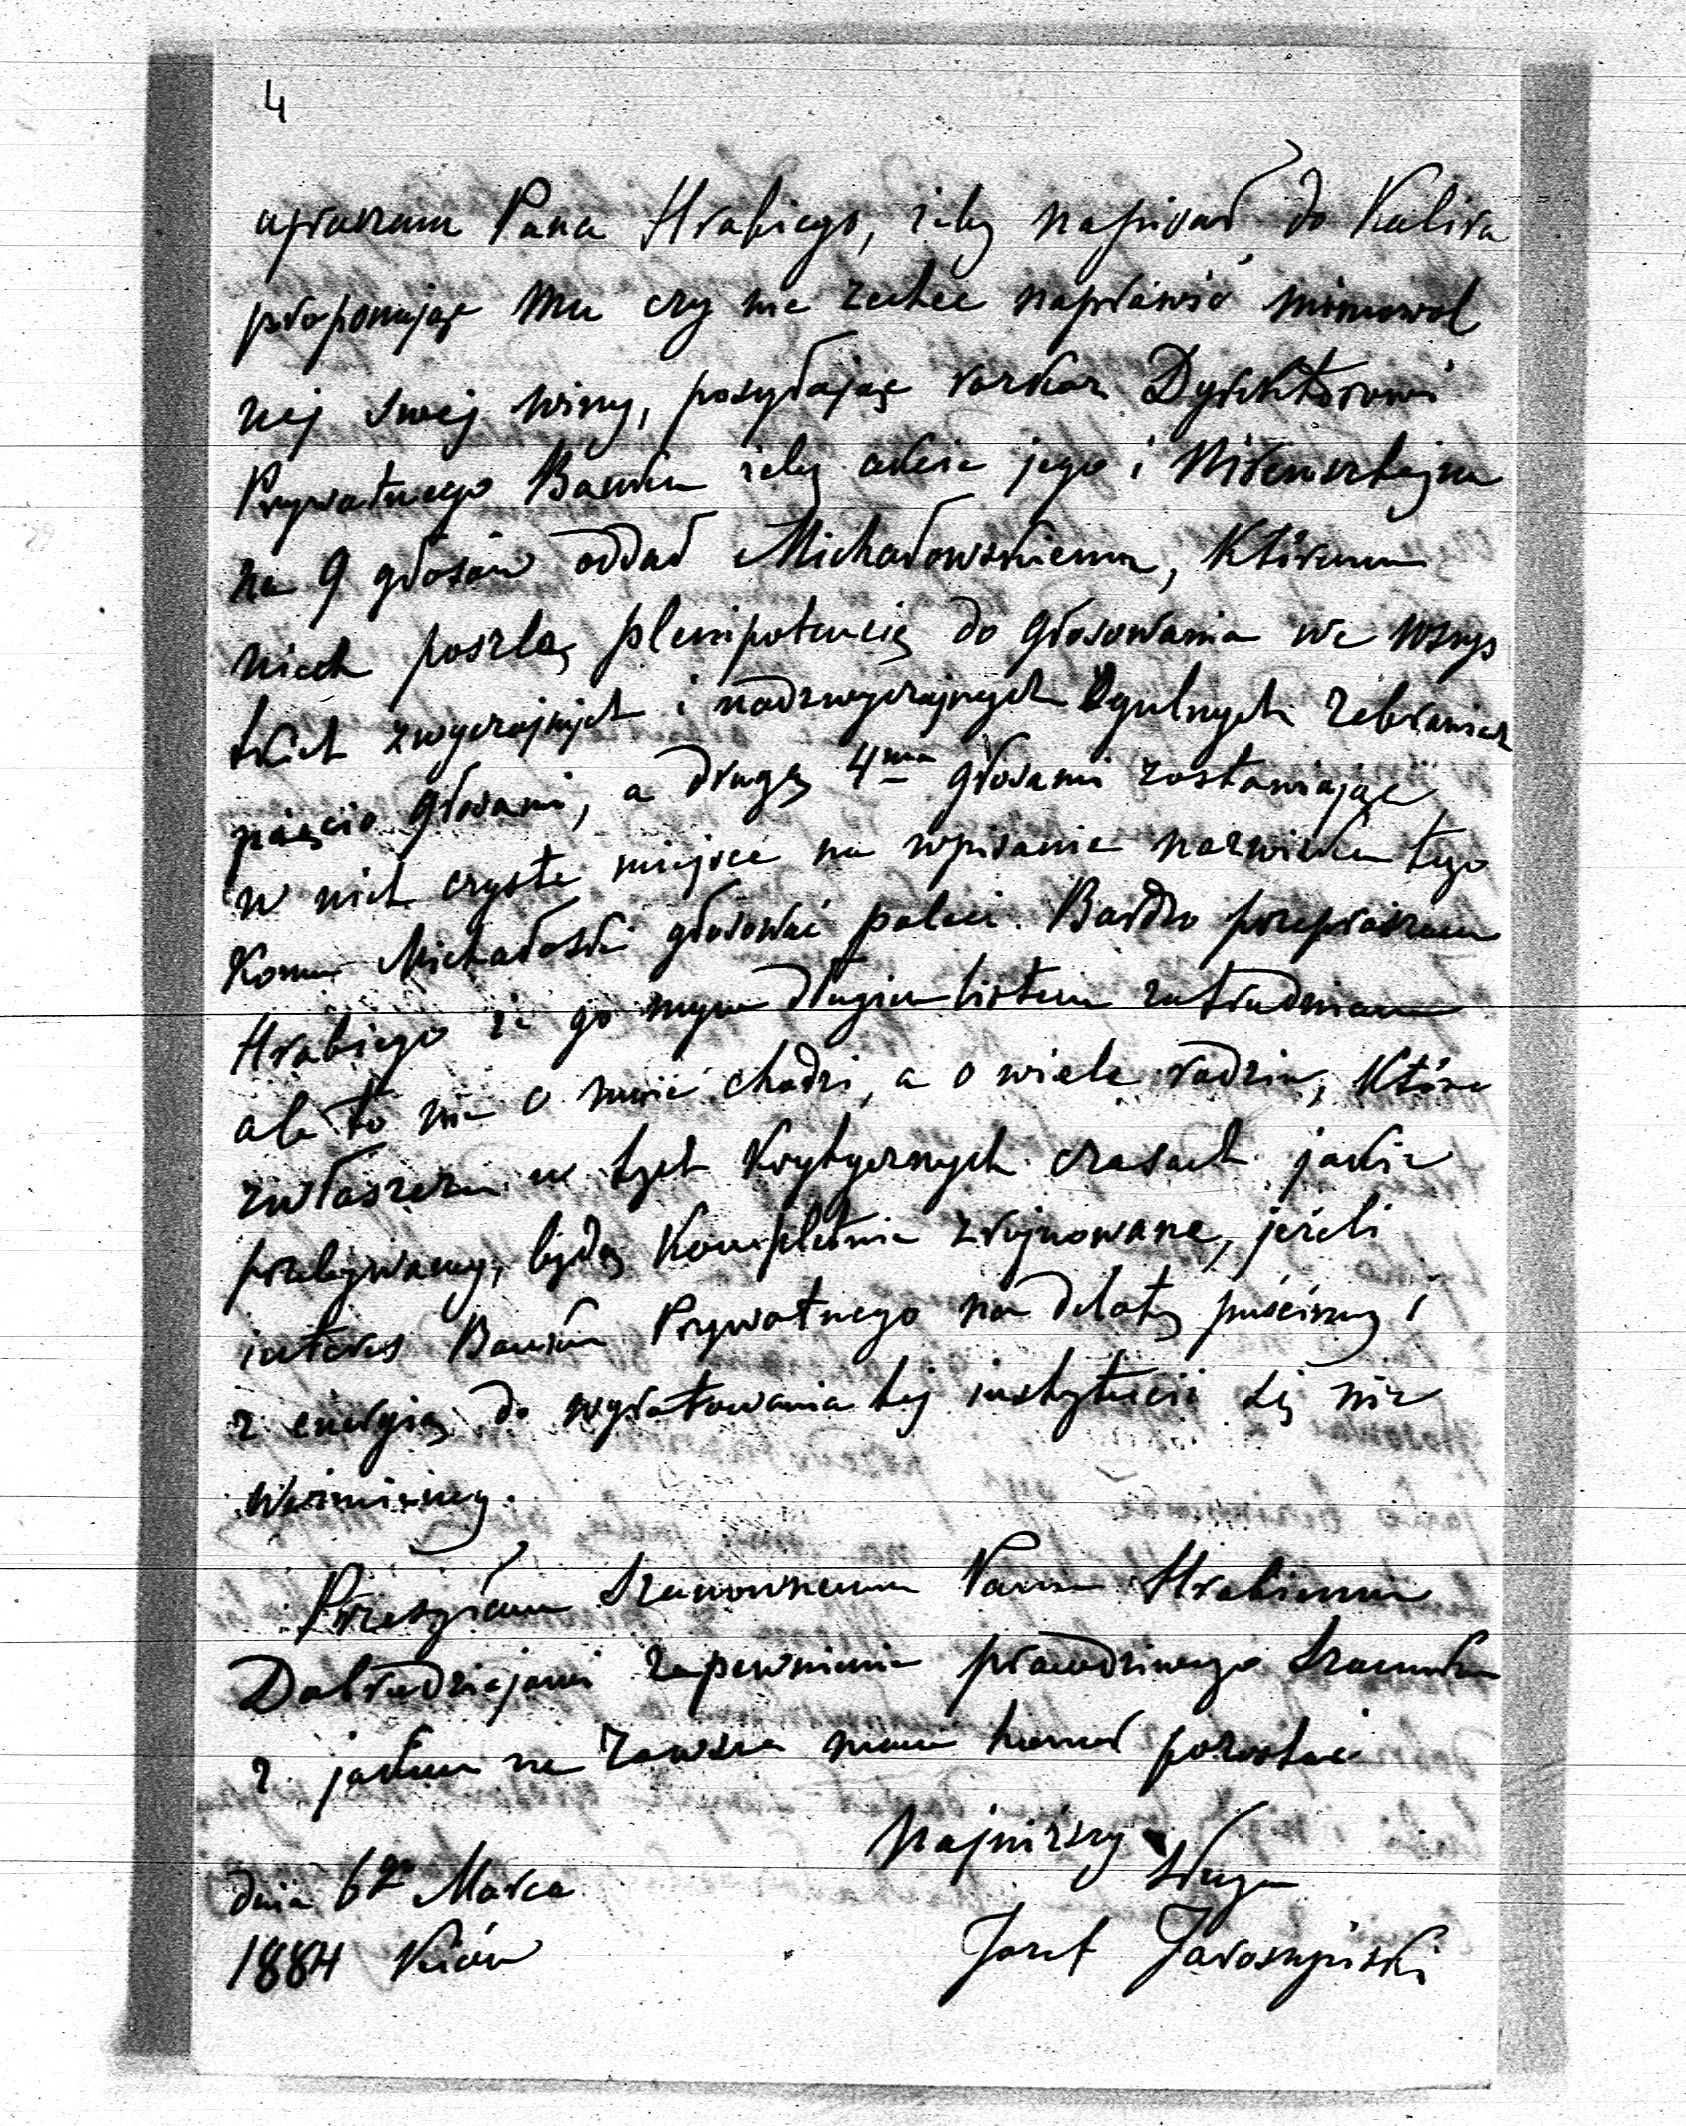 4
upraszam Pana Hrabiego, żeby napisał do Kaliva
proponując mu czy nie zechce naprawić mimowol
nej swej winy, posyłając rozkaz Dyrektorowi
Prywatnego Banku żeby akcie jego i
na 9 głosów oddał Michałowskiemu, któremu
niech poszlą plenipotencię do głosowania we wszys
tkich zwyczajnych i nadzwyczajnych Ogulnych Zebraniach
pięcio głosami, a drugą 4ma głosami zostawiając
w nich czyste miejsce na wpisanie nazwiska tego
komu Michałoski głosować poleci. Bardzo przepraszam
Hrabiego że go mym długim listem zatrudniam
ale to nie o mnie chodzi, a o wiele rodzin, które
zwłaszcza w tych krytycznych czasach jakie
przebywamy, będą kompletnie zrujnowane, jeżeli
interes Banku Prywatnego na dal puścimy i
z energią do wyratowania tej instytucii się nie
weźmiemy.
Przesyłam Szanownemu Panu Hrabiemu
Dobrodziejowi zapewnienie prawdziwego szacunku
z jakim na zawsze mam honor pozostać
Najniższy
sługa
dnia 6go Marca
1884 Kiów
Józef Jaroszyński